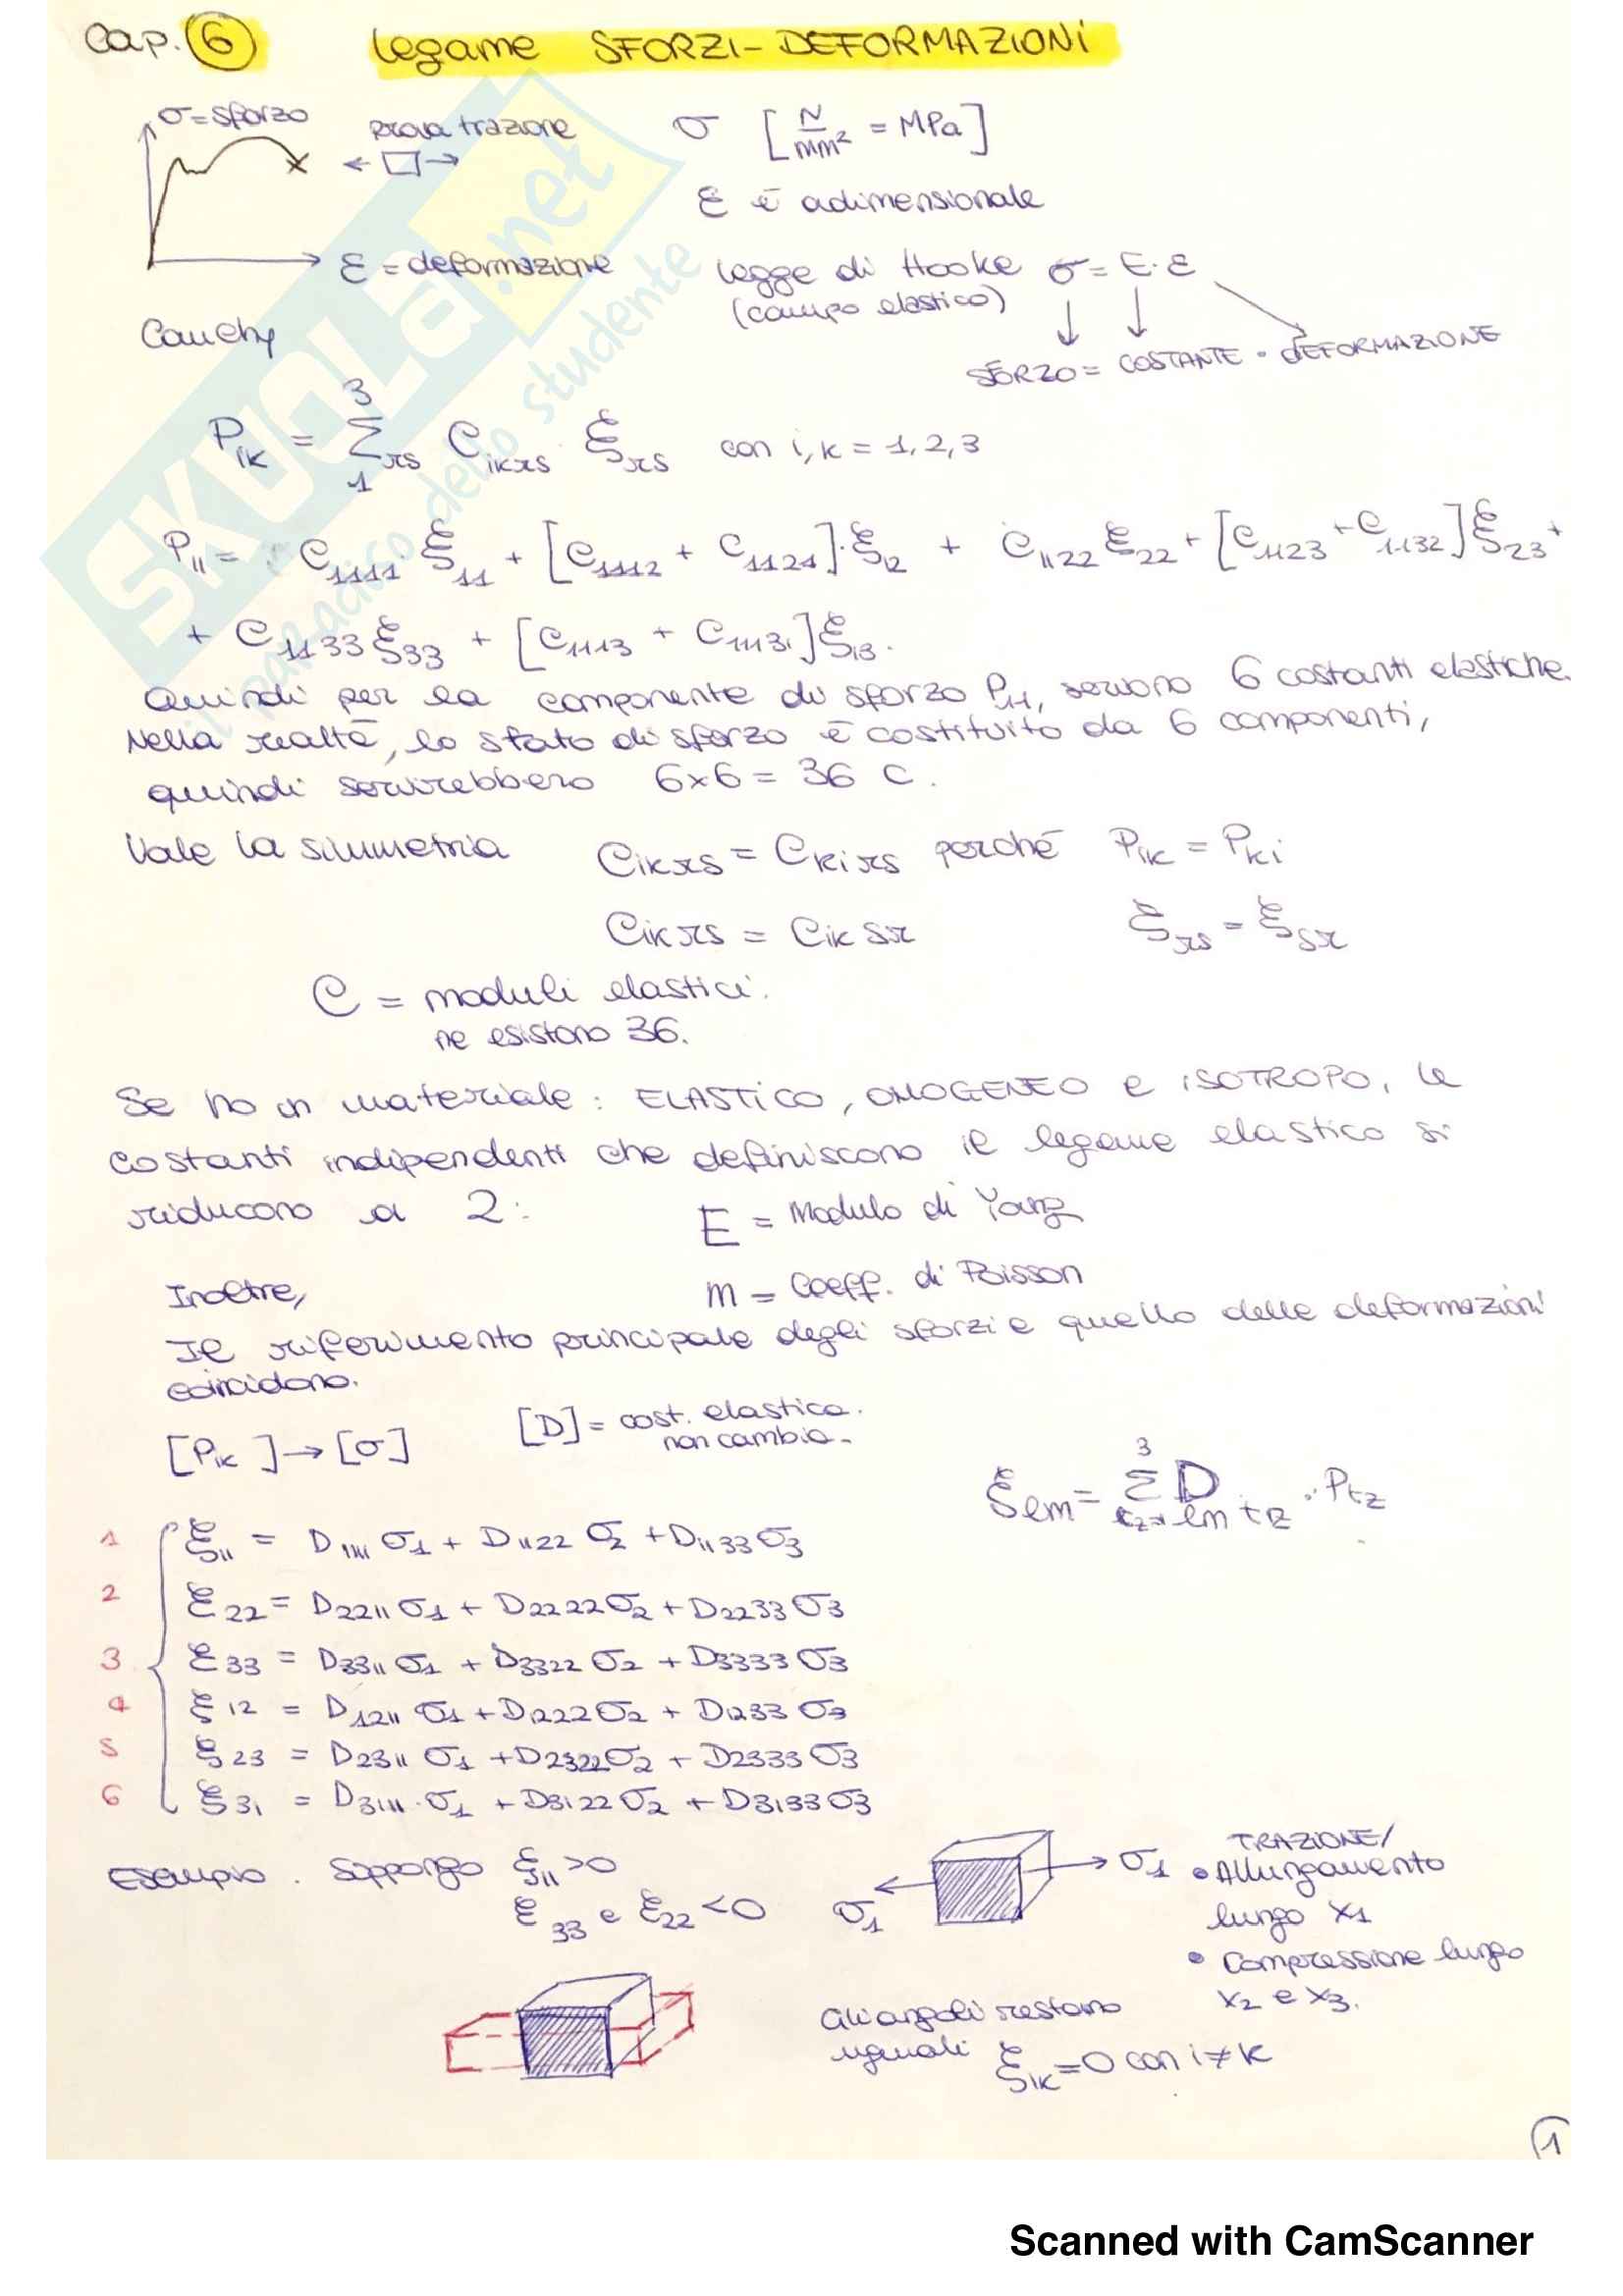 Cap. 6 Legame SFORZI-DEFORMAZIONI
σ = sforzo
prova trazione
σ [N/mm² = MPa]
ε è adimensionale
ε = deformazione
Legge di Hooke σ = E·ε
(campo elastico)
SFORZO = COSTANTE · DEFORMAZIONE
Cauchy
P_ik = Σ_rs (1, 3) C_ikrs ξ_rs con i, k = 1, 2, 3
P_11 = C_1111 · ξ_11 + [C_1112 + C_1121] · ξ_12 + C_1122 ξ_22 + [C_1123 + C_1132] ξ_23 +
+ C_1133 ξ_33 + [C_1113 + C_1131] ξ_13.
Quindi per la componente di sforzo P_11, servono 6 costanti elastiche.
Nella realtà, lo stato di sforzo è costituito da 6 componenti,
quindi servirebbero 6x6 = 36 C.
Vale la simmetria C_ikrs = C_kirs perché P_ik = P_ki
C_ikrs = C_iksr ξ_rs = ξ_sr
C = moduli elastici.
ne esistono 36.
Se ho un materiale: ELASTICO, OMOGENEO e ISOTROPO, le
costanti indipendenti che definiscono il legame elastico si
riducono a 2:
E = Modulo di Young
m = Coeff. di Poisson
Inoltre,
Il riferimento principale degli sforzi e quello delle deformazioni
coincidono.
[P_ik] → [σ]
[D] = cost. elastica.
non cambia.
ξ_lm = Σ (3) D_lmtz · P_tz
1 ξ_11 = D_1111 σ_1 + D_1122 σ_2 + D_1133 σ_3
2 ξ_22 = D_2211 σ_1 + D_2222 σ_2 + D_2233 σ_3
3 ξ_33 = D_3311 σ_1 + D_3322 σ_2 + D_3333 σ_3
4 ξ_12 = D_1211 σ_1 + D_1222 σ_2 + D_1233 σ_3
5 ξ_23 = D_2311 σ_1 + D_2322 σ_2 + D_2333 σ_3
6 ξ_31 = D_3111 · σ_1 + D_3122 σ_2 + D_3133 σ_3
Esempio. Suppongo ξ_11 > 0
ξ_33 e ξ_22 < 0
σ_1
σ_1
TRAZIONE/
• Allungamento
lungo x1
• Compressione lungo
x2 e x3.
Gli angoli restano
uguali ξ_ik = 0 con i ≠ k
1
SKUOLA.net
il paradiso dello studente
Scanned with CamScanner